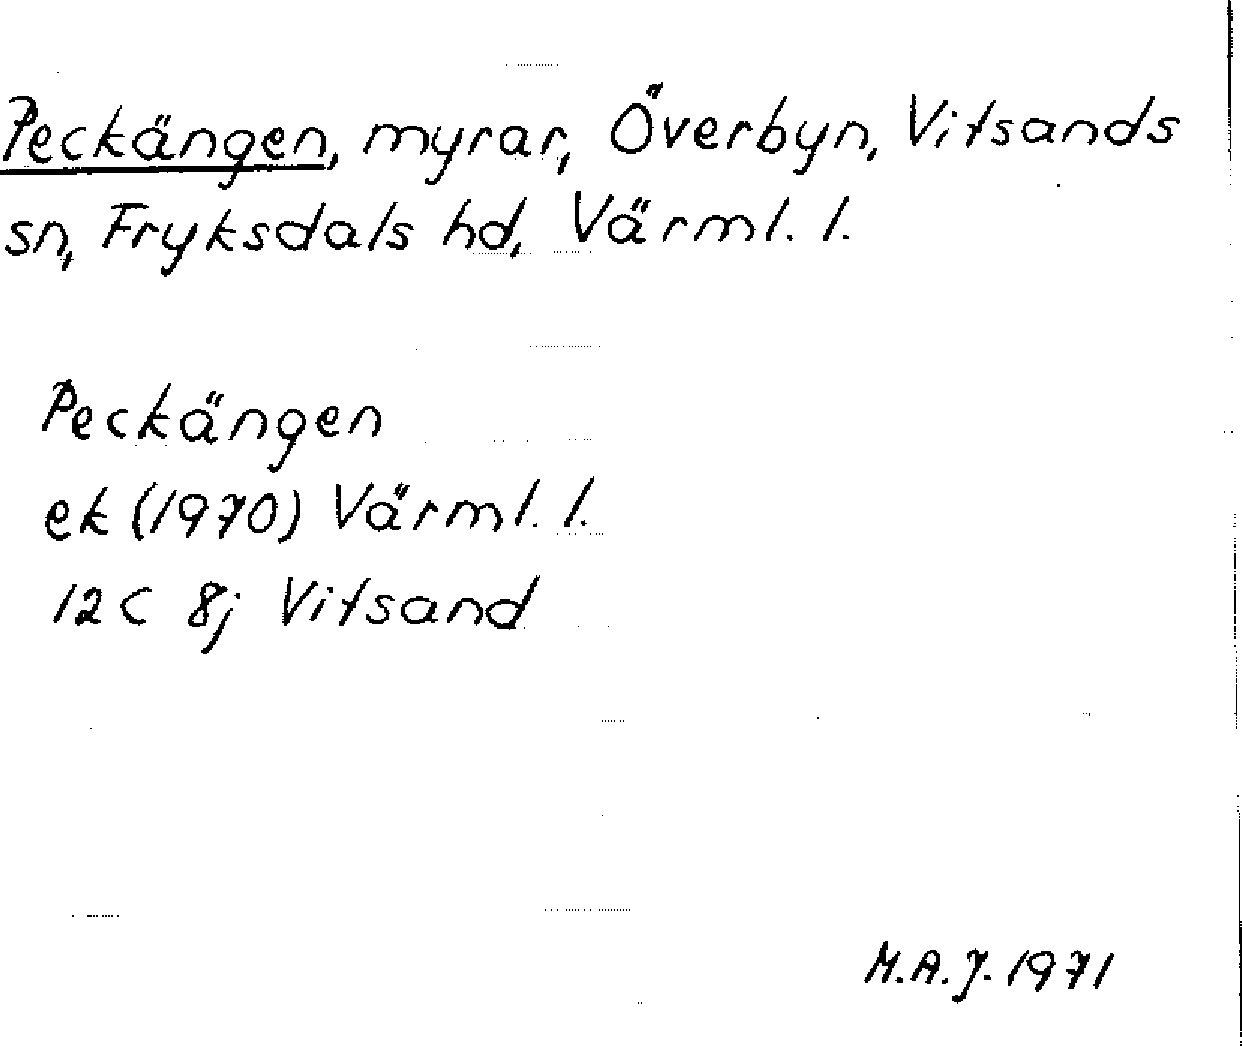 Peckängen, myrar, Överbyn, Vitsands
sn, Fryksdals hd, Värml. l.
Peckängen
ek (1970) Värml. l.
12C 8j Vitsand
M.A.J. 1971